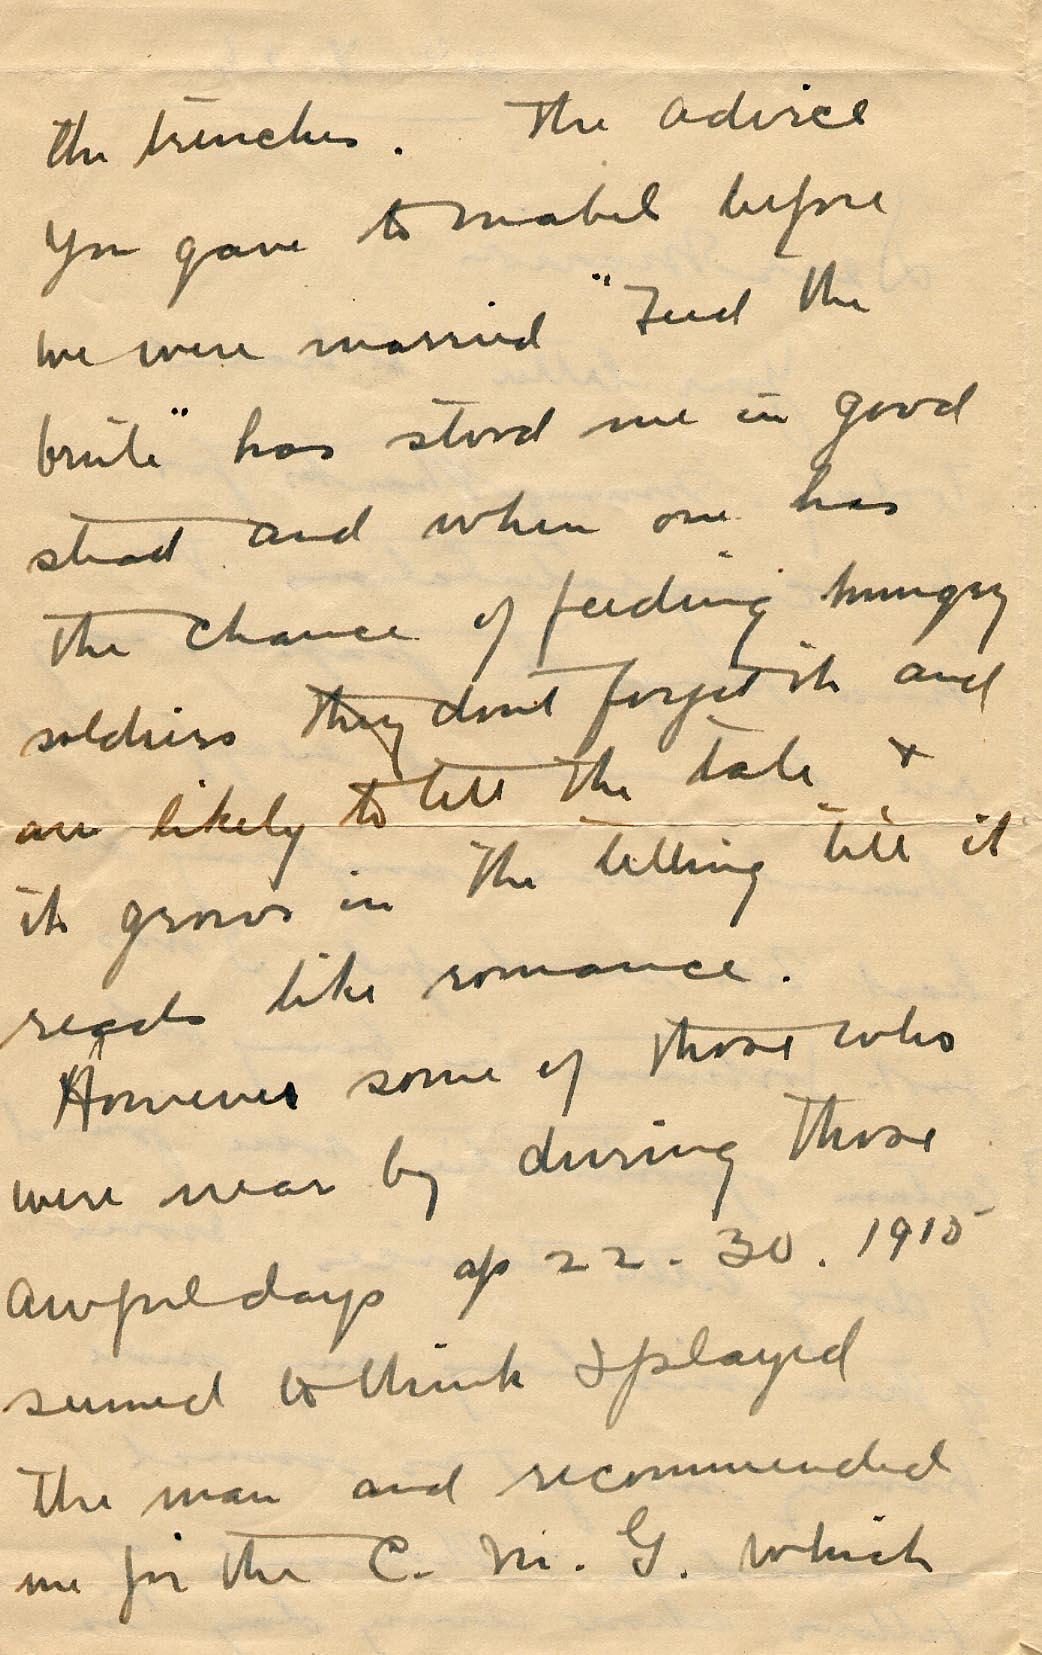 the trenches. The advice
you gave to Mabel before
we were married "Feed the
brute" has stood me in good
stead and when one has
the chance of feeding hungry
soldiers they dont forget it and
are likely to tell the tale +
it grows in the telling till it
reads like romance.
However some of those who
were near by during those
awful days ap 22 - 30. 1915
seemed to think I played
the man and recommended
me for the C. M. G. which